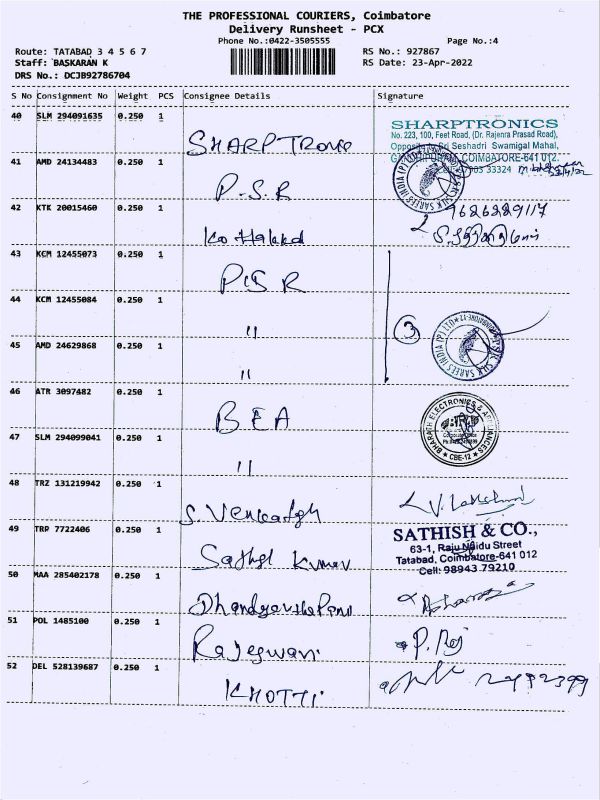 THE PROFESSIONAL COURIERS, Coimbatore
Delivery Runsheet - PCX
Phone No.:0422-3505555
Page No.:4
Route: TATABAD 3 4 5 6 7
RS No.: 927867
Staff: BASKARAN K
RS Date: 23-Apr-2022
DRS No.: DCJB92786704
S No Consignment No Weight PCS Consignee Details Signature
40 SLM 294091635 0.250 1 SHARPTRONO
SHARPTRONICS
No. 223, 100, Feet Road, (Dr. Rajenra Prasad Road),
Opposite Sri Seshadri Swamigal Mahal,
COIMBATORE-641 012.
33324
41 AMD 24134483 0.250 1 P.S.R
P.S.R SILK SAREES INDIA (P) LTD
42 KTK 20015460 0.250 1
9626229117
43 KCM 12455073 0.250 1 P.S R
44 KCM 12455084 0.250 1 "
3
P.S.R SILK SAREES INDIA (P) LTD
45 AMD 24629868 0.250 1 "
46 ATR 3097482 0.250 1 BEA
BHARATH ELECTRONICS & APPLIANCES
CBE-12
47 SLM 294099041 0.250 1 "
48 TRZ 131219942 0.250 1 S. Venkatesh
V. Lakshmi
49 TRP 7722406 0.250 1 Sathish Kumar
SATHISH & CO.,
63-1, Raju Naidu Street
Tatabad, Coimbatore-641 012
Cell: 98943 79210
50 MAA 285402178 0.250 1 Dhandayuthapani
51 POL 1485100 0.250 1 Rajeswari
P. Raj
52 DEL 528139687 0.250 1 KHOTTI